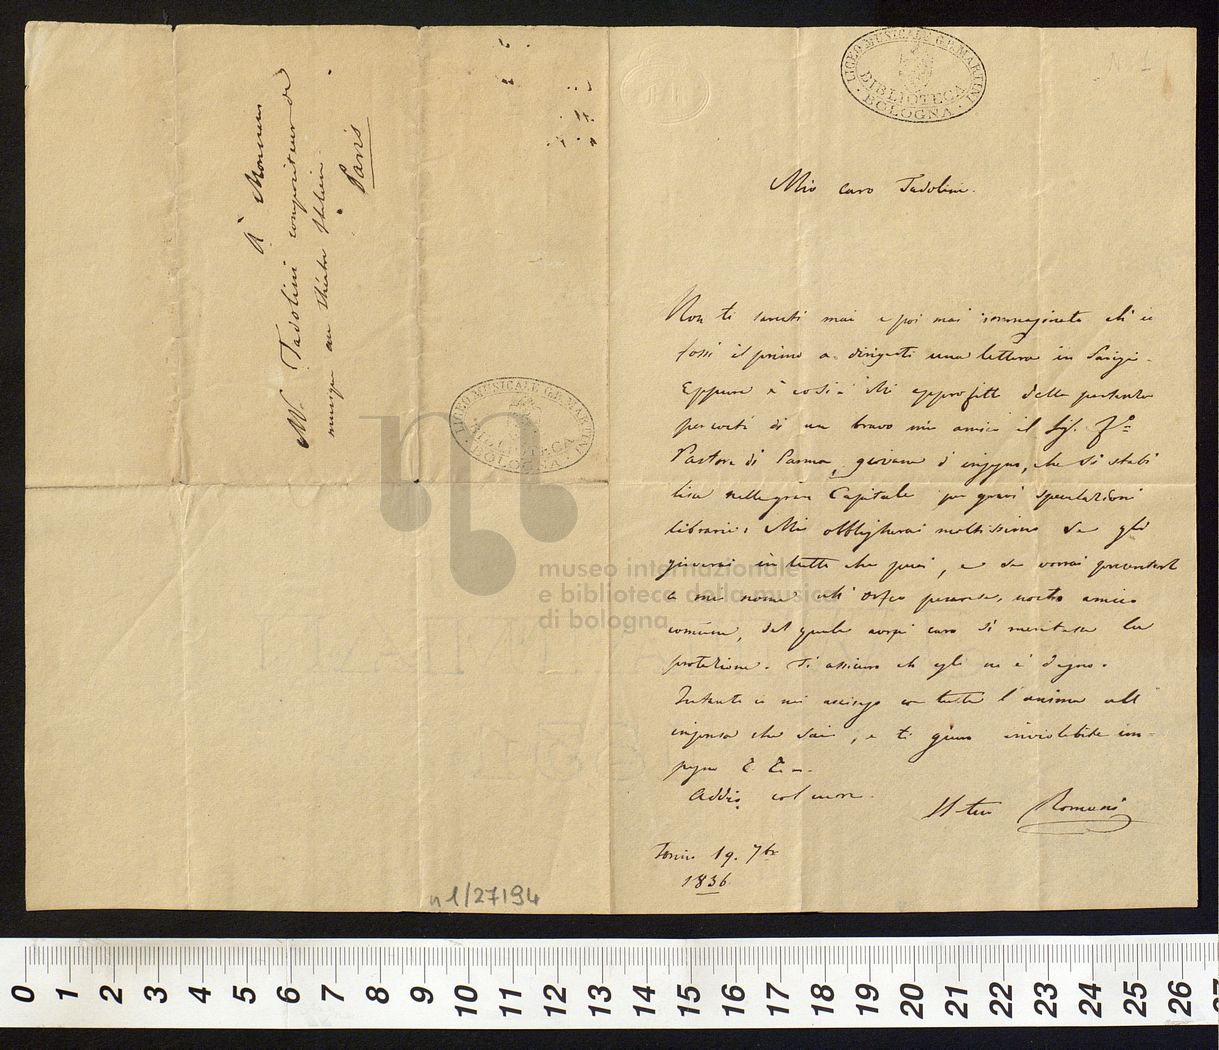 A Monsieur
M. Tadolini compositeur de
musique au Théatre Italien
Paris
LICEO MUSICALE G.B. MARTINI
BIBLIOTECA
BOLOGNA
N 1
Mio caro Tadolini.
Non ti saresti mai e poi mai immaginato ch'io
fossi il primo a dirigerti una lettera in Parigi.
Eppure è così. Mi approfitto della partenza
per costì di un bravo mio amico il Sig.
Pastori di Parma, giovane d'ingegno, che si stabi
lisce nella gran Capitale per gravi speculazioni
librarie. Mi obbligherai moltissimo se gli
gioverai in tutto che puoi, e se vorrai presentarlo
a mio nome nostro amico
comune, dal quale avrei caro si meritasse la
protezione. Ti assicuro ch'egli ne è degno.
Intanto io mi accingo con tutta l'anima all
impresa che sai, e ti giuro inviolabile im-
pegno
Addio col cuore.
Il tuo Romani
Torino 19. 7bre
1836.
LICEO MUSICALE G.B. MARTINI
BIBLIOTECA
BOLOGNA
museo internazionale
e biblioteca della musica
di bologna
n 1/27194
0 1 2 3 4 5 6 7 8 9 10 11 12 13 14 15 16 17 18 19 20 21 22 23 24 25 26 27